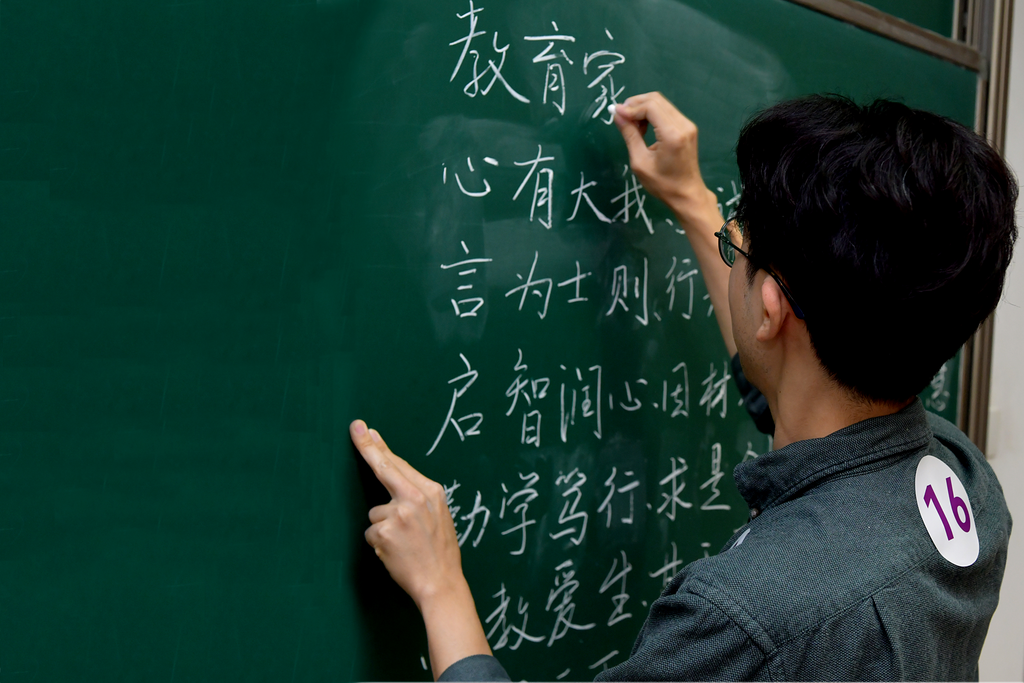 教育家
心有大我
言为士则.行
启智润心.因材
勤学笃行.求是
教爱生.
慧
16